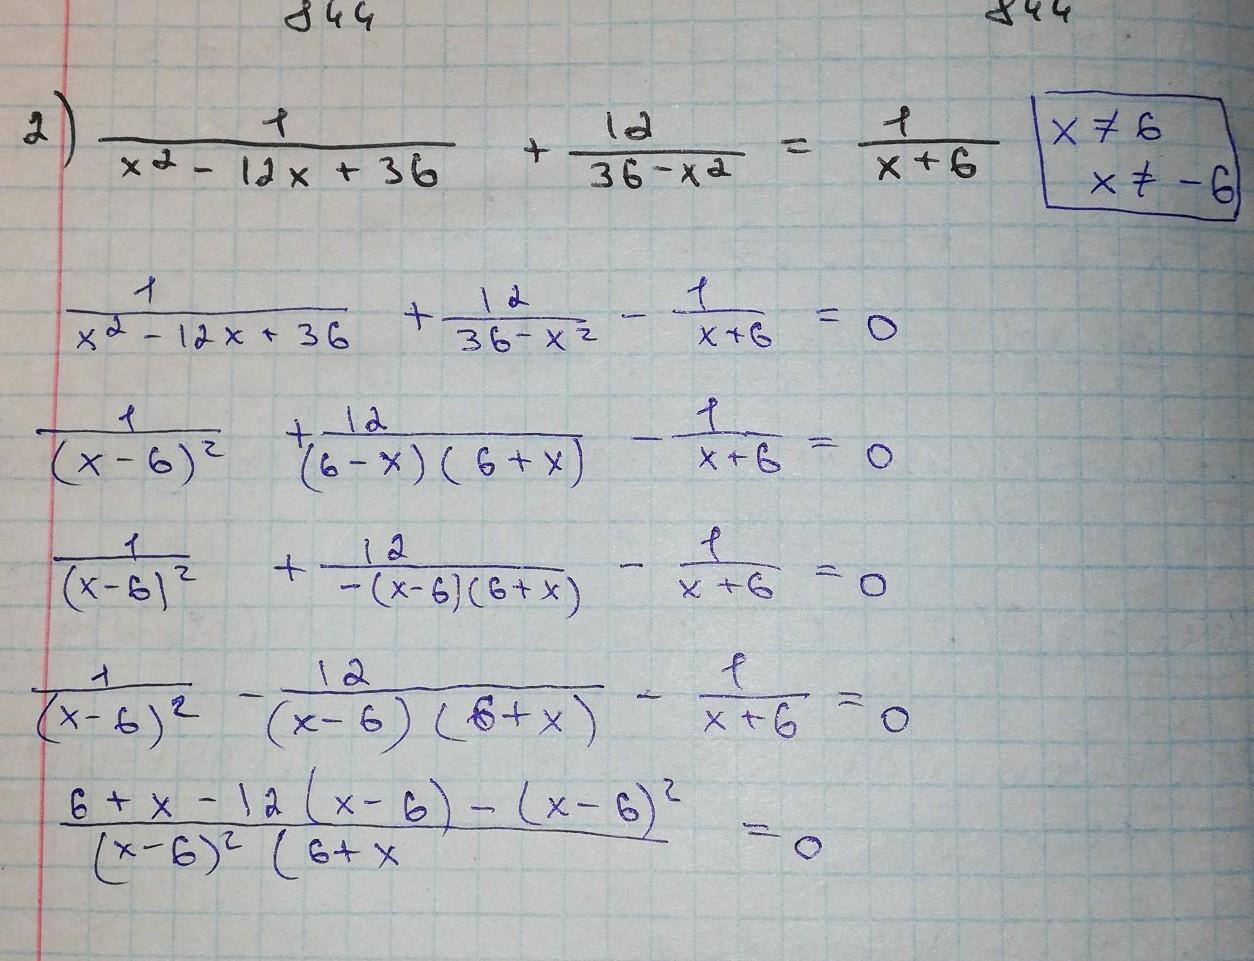 844 844
2) 1/(x² - 12x + 36) + 12/(36 - x²) = 1/(x + 6) x ≠ 6
x ≠ -6
1/(x² - 12x + 36) + 12/(36 - x²) - 1/(x + 6) = 0
1/(x - 6)² + 12/((6 - x)(6 + x)) - 1/(x + 6) = 0
1/(x - 6)² + 12/(-(x - 6)(6 + x)) - 1/(x + 6) = 0
1/(x - 6)² - 12/((x - 6)(6 + x)) - 1/(x + 6) = 0
6 + x - 12(x - 6) - (x - 6)²/(x - 6)² (6 + x = 0